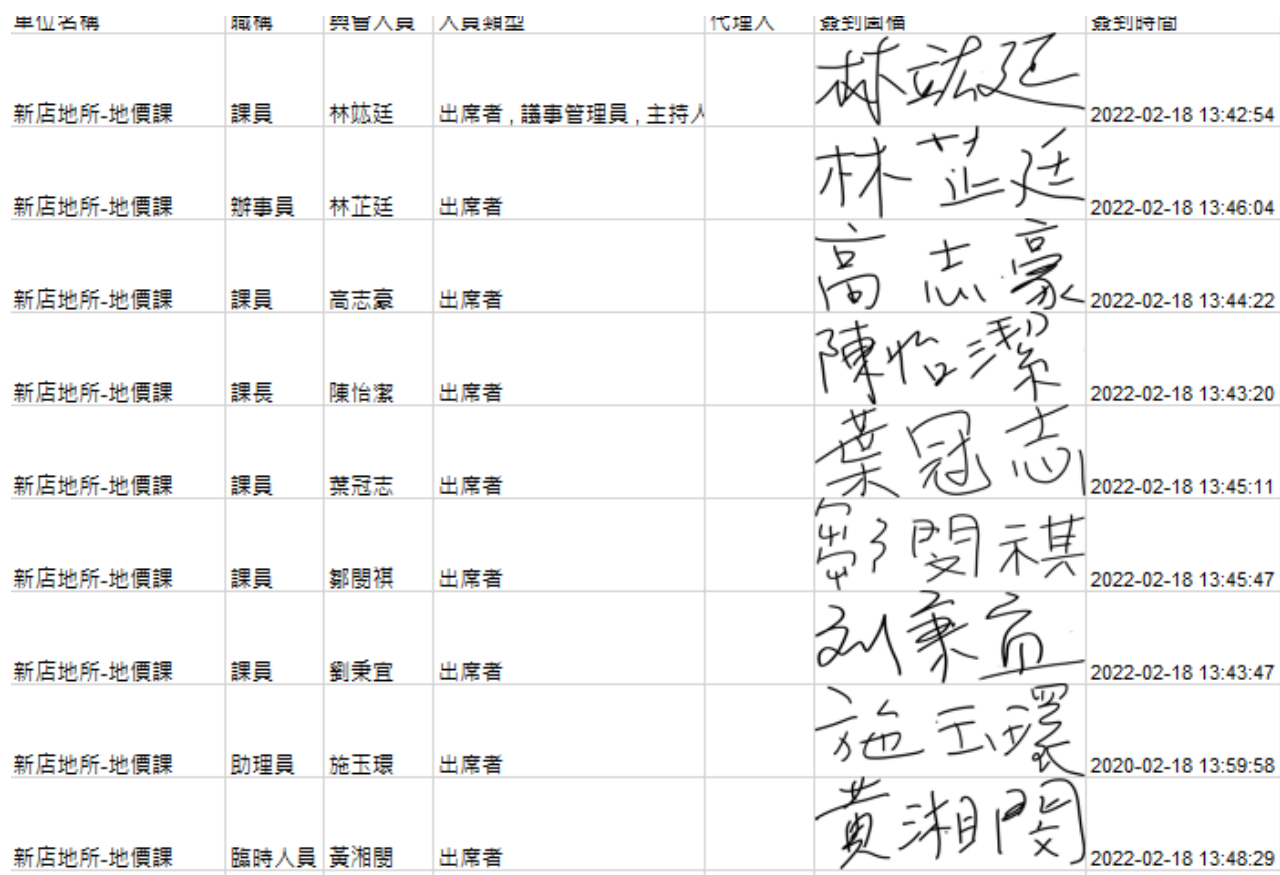 單位名稱 職稱 與會人員 人員類型 代理人 簽到圖檔 簽到時間
新店地所-地價課 課員 林竑廷 出席者 , 議事管理員 , 主持人 林竑廷 2022-02-18 13:42:54
新店地所-地價課 辦事員 林芷廷 出席者 林芷廷 2022-02-18 13:46:04
新店地所-地價課 課員 高志豪 出席者 高志豪 2022-02-18 13:44:22
新店地所-地價課 課長 陳怡潔 出席者 陳怡潔 2022-02-18 13:43:20
新店地所-地價課 課員 葉冠志 出席者 葉冠志 2022-02-18 13:45:11
新店地所-地價課 課員 鄒閔祺 出席者 鄒閔祺 2022-02-18 13:45:47
新店地所-地價課 課員 劉秉宜 出席者 刘秉宜 2022-02-18 13:43:47
新店地所-地價課 助理員 施玉環 出席者 施玉環 2020-02-18 13:59:58
新店地所-地價課 臨時人員 黃湘閔 出席者 黃湘閔 2022-02-18 13:48:29